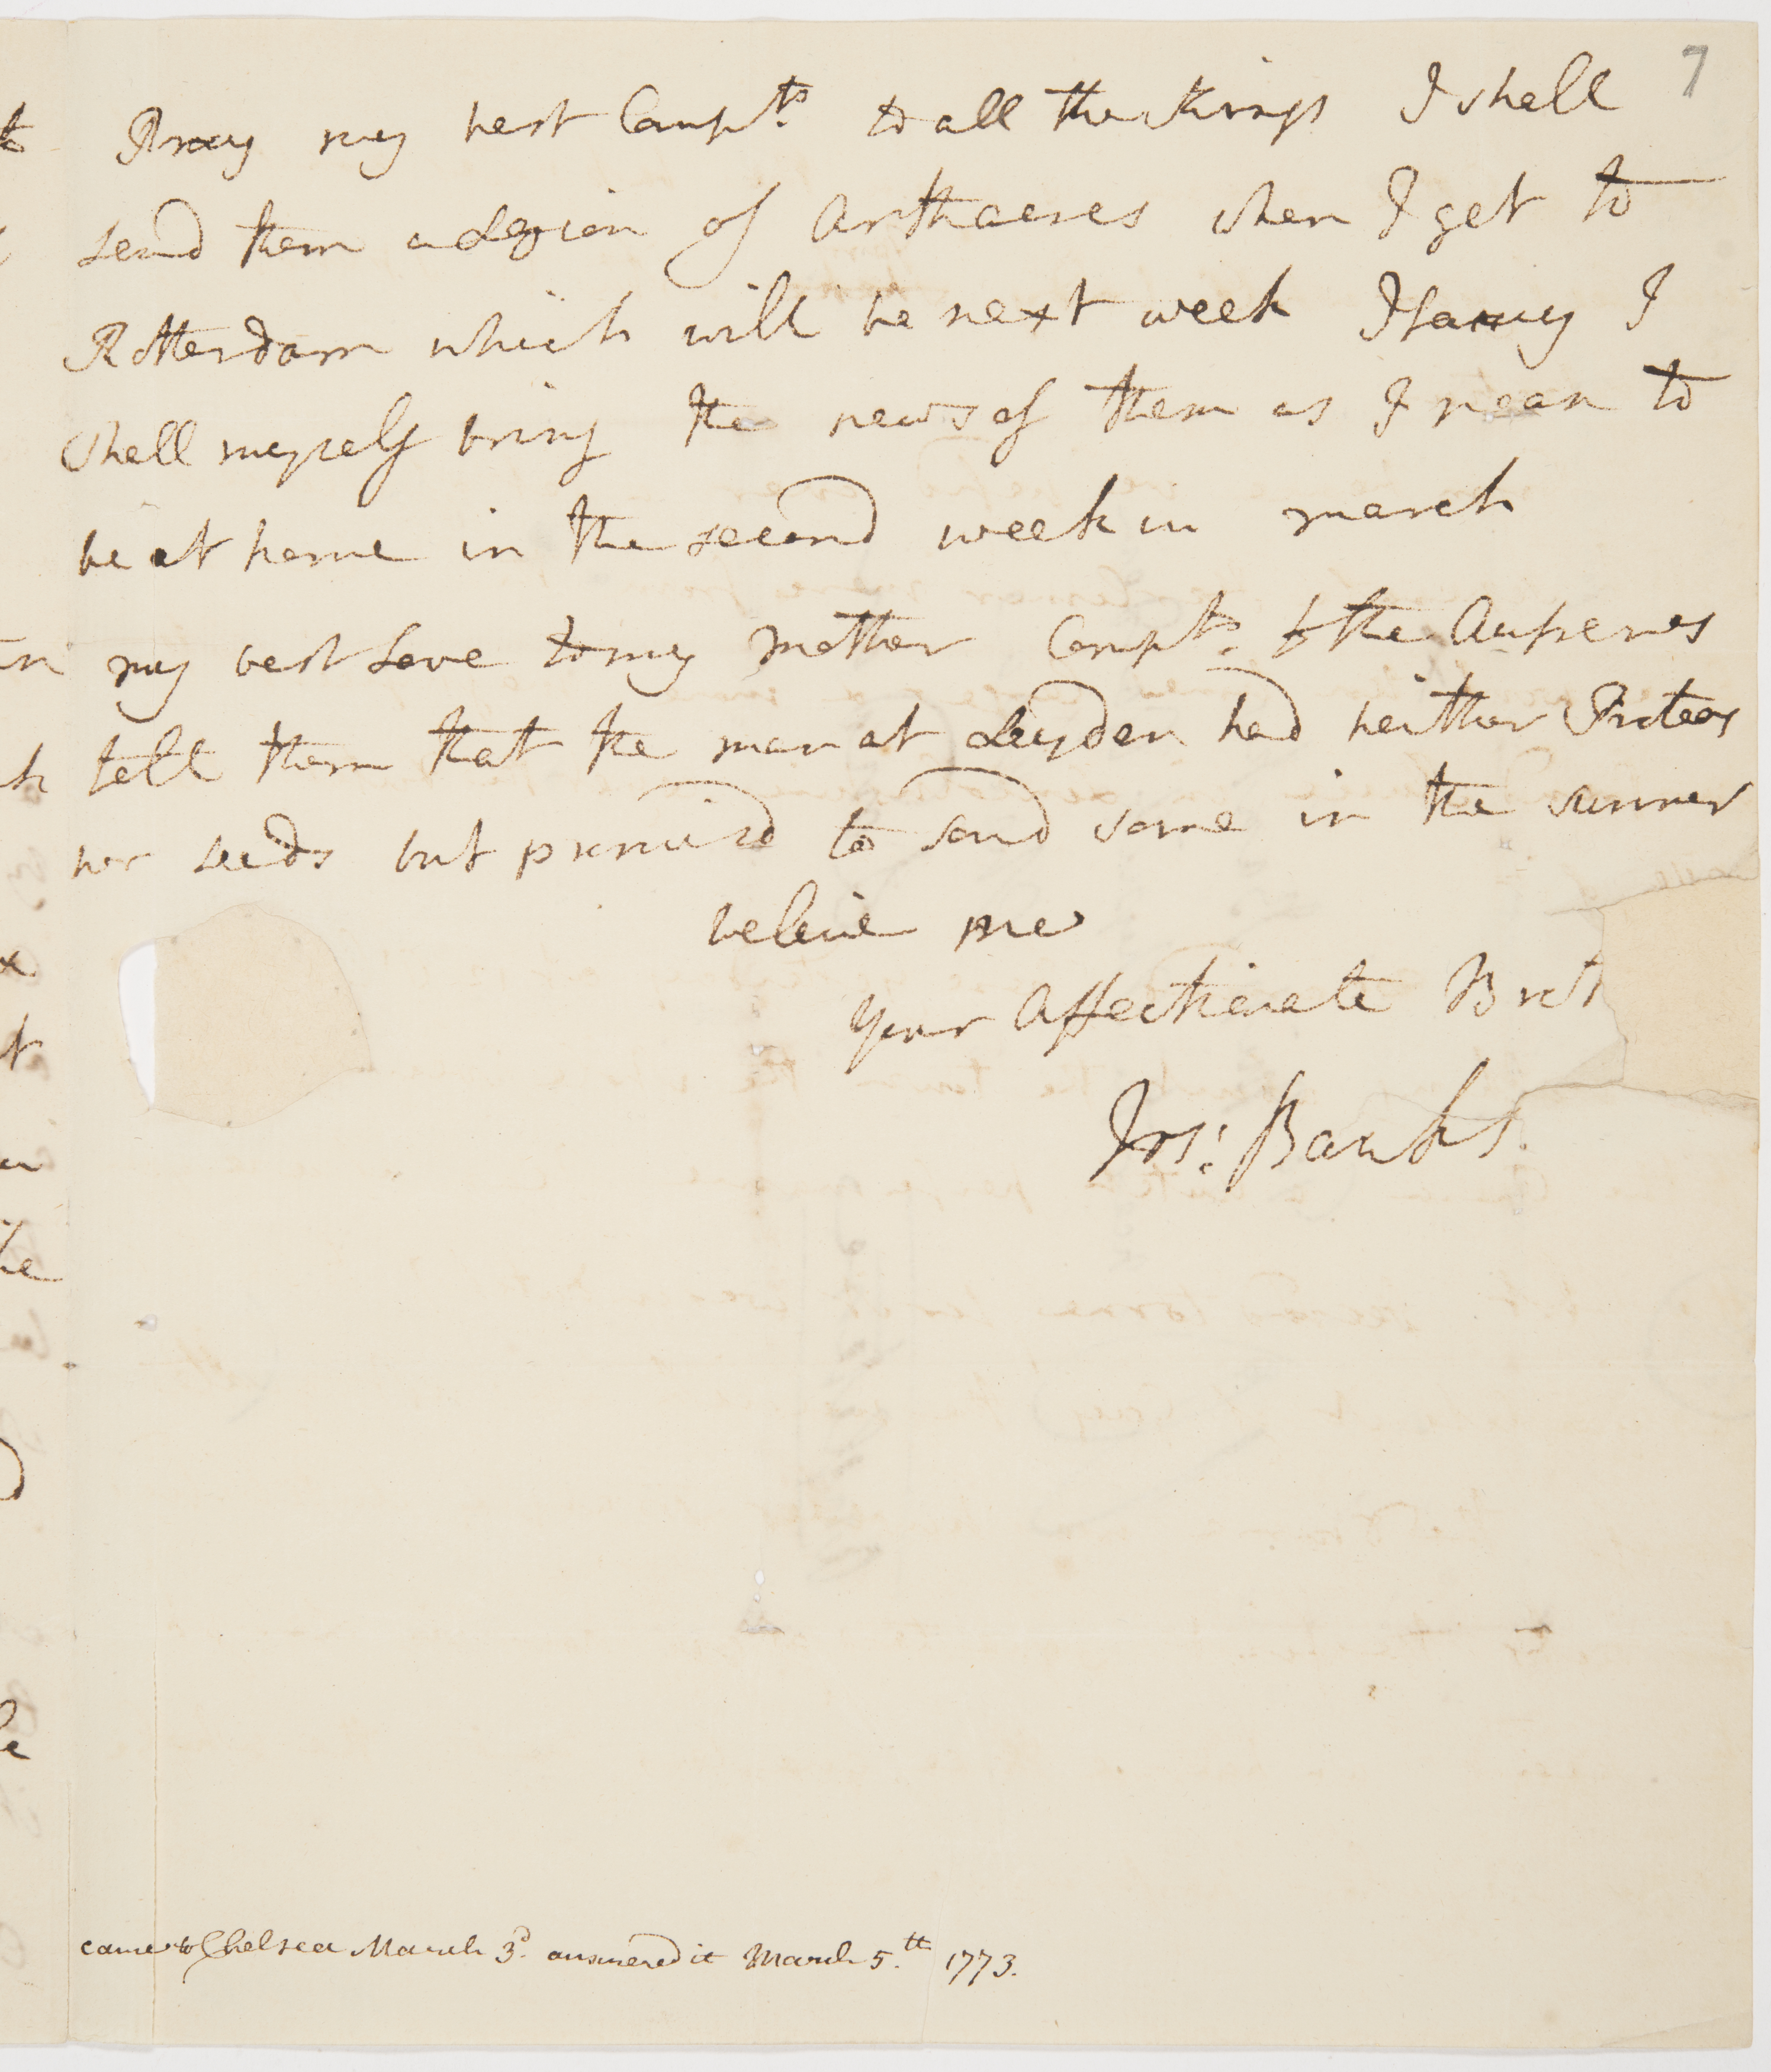 7
Pray my best Compts. to all the Kings I shall
send them a Legion of
when I get to
Rotterdam which will be next week I fancy I
shall myself bring the news of them as I mean to
be at home in the second week in march
my best Love to my Mother Compts. to the
tell them that the man at Leyden had neither Proteas
nor seeds but promisd to send some in the summer
beleive me
your Affectionate Brot
Jos: Banks.
came to Chelsea March 3d. answered it March 5.th 1773.